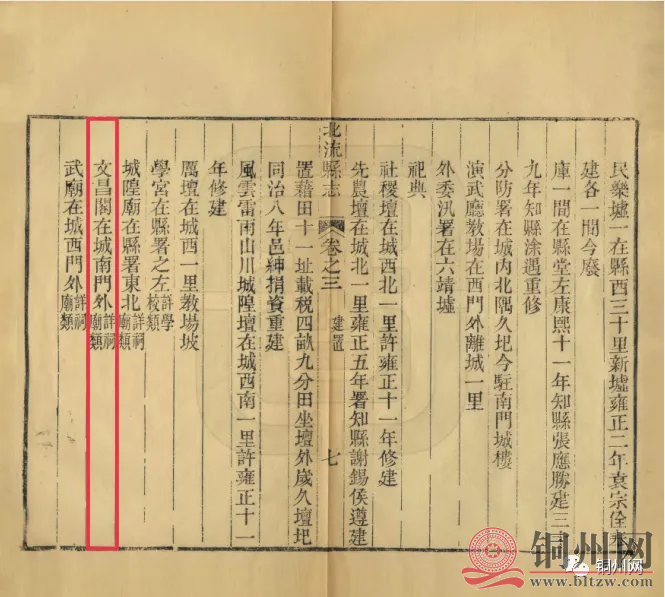 民樂墟一在縣西三十里新墟雍正二年袁宗佺奉
建各一間今廢
庫一間在縣堂左康熙十一年知縣張應勝建三
九年知縣涂遇重修
分防署在城內北隅久圮今駐南門城樓
演武廳教場在西門外離城一里
外委汛署在六靖墟
祀典
社稷壇在城西北一里許雍正十一年修建
先農壇在城北一里雍正五年署知縣謝錫侯遵建
置藉田十一址載稅四畝九分田坐壇外歲久壇圮
同治八年邑紳捐資重建
北流縣志 卷之三 建置 七
風雲雷雨山川城隍壇在城西南一里許雍正十一
年修建
厲壇在城西一里教場坡
學宮在縣署之左詳學校類
城隍廟在縣署東北詳祠廟類
文昌閣在城南門外詳祠廟類
武廟在城西門外詳祠廟類
铜州网
www.bltzw.com
铜州网